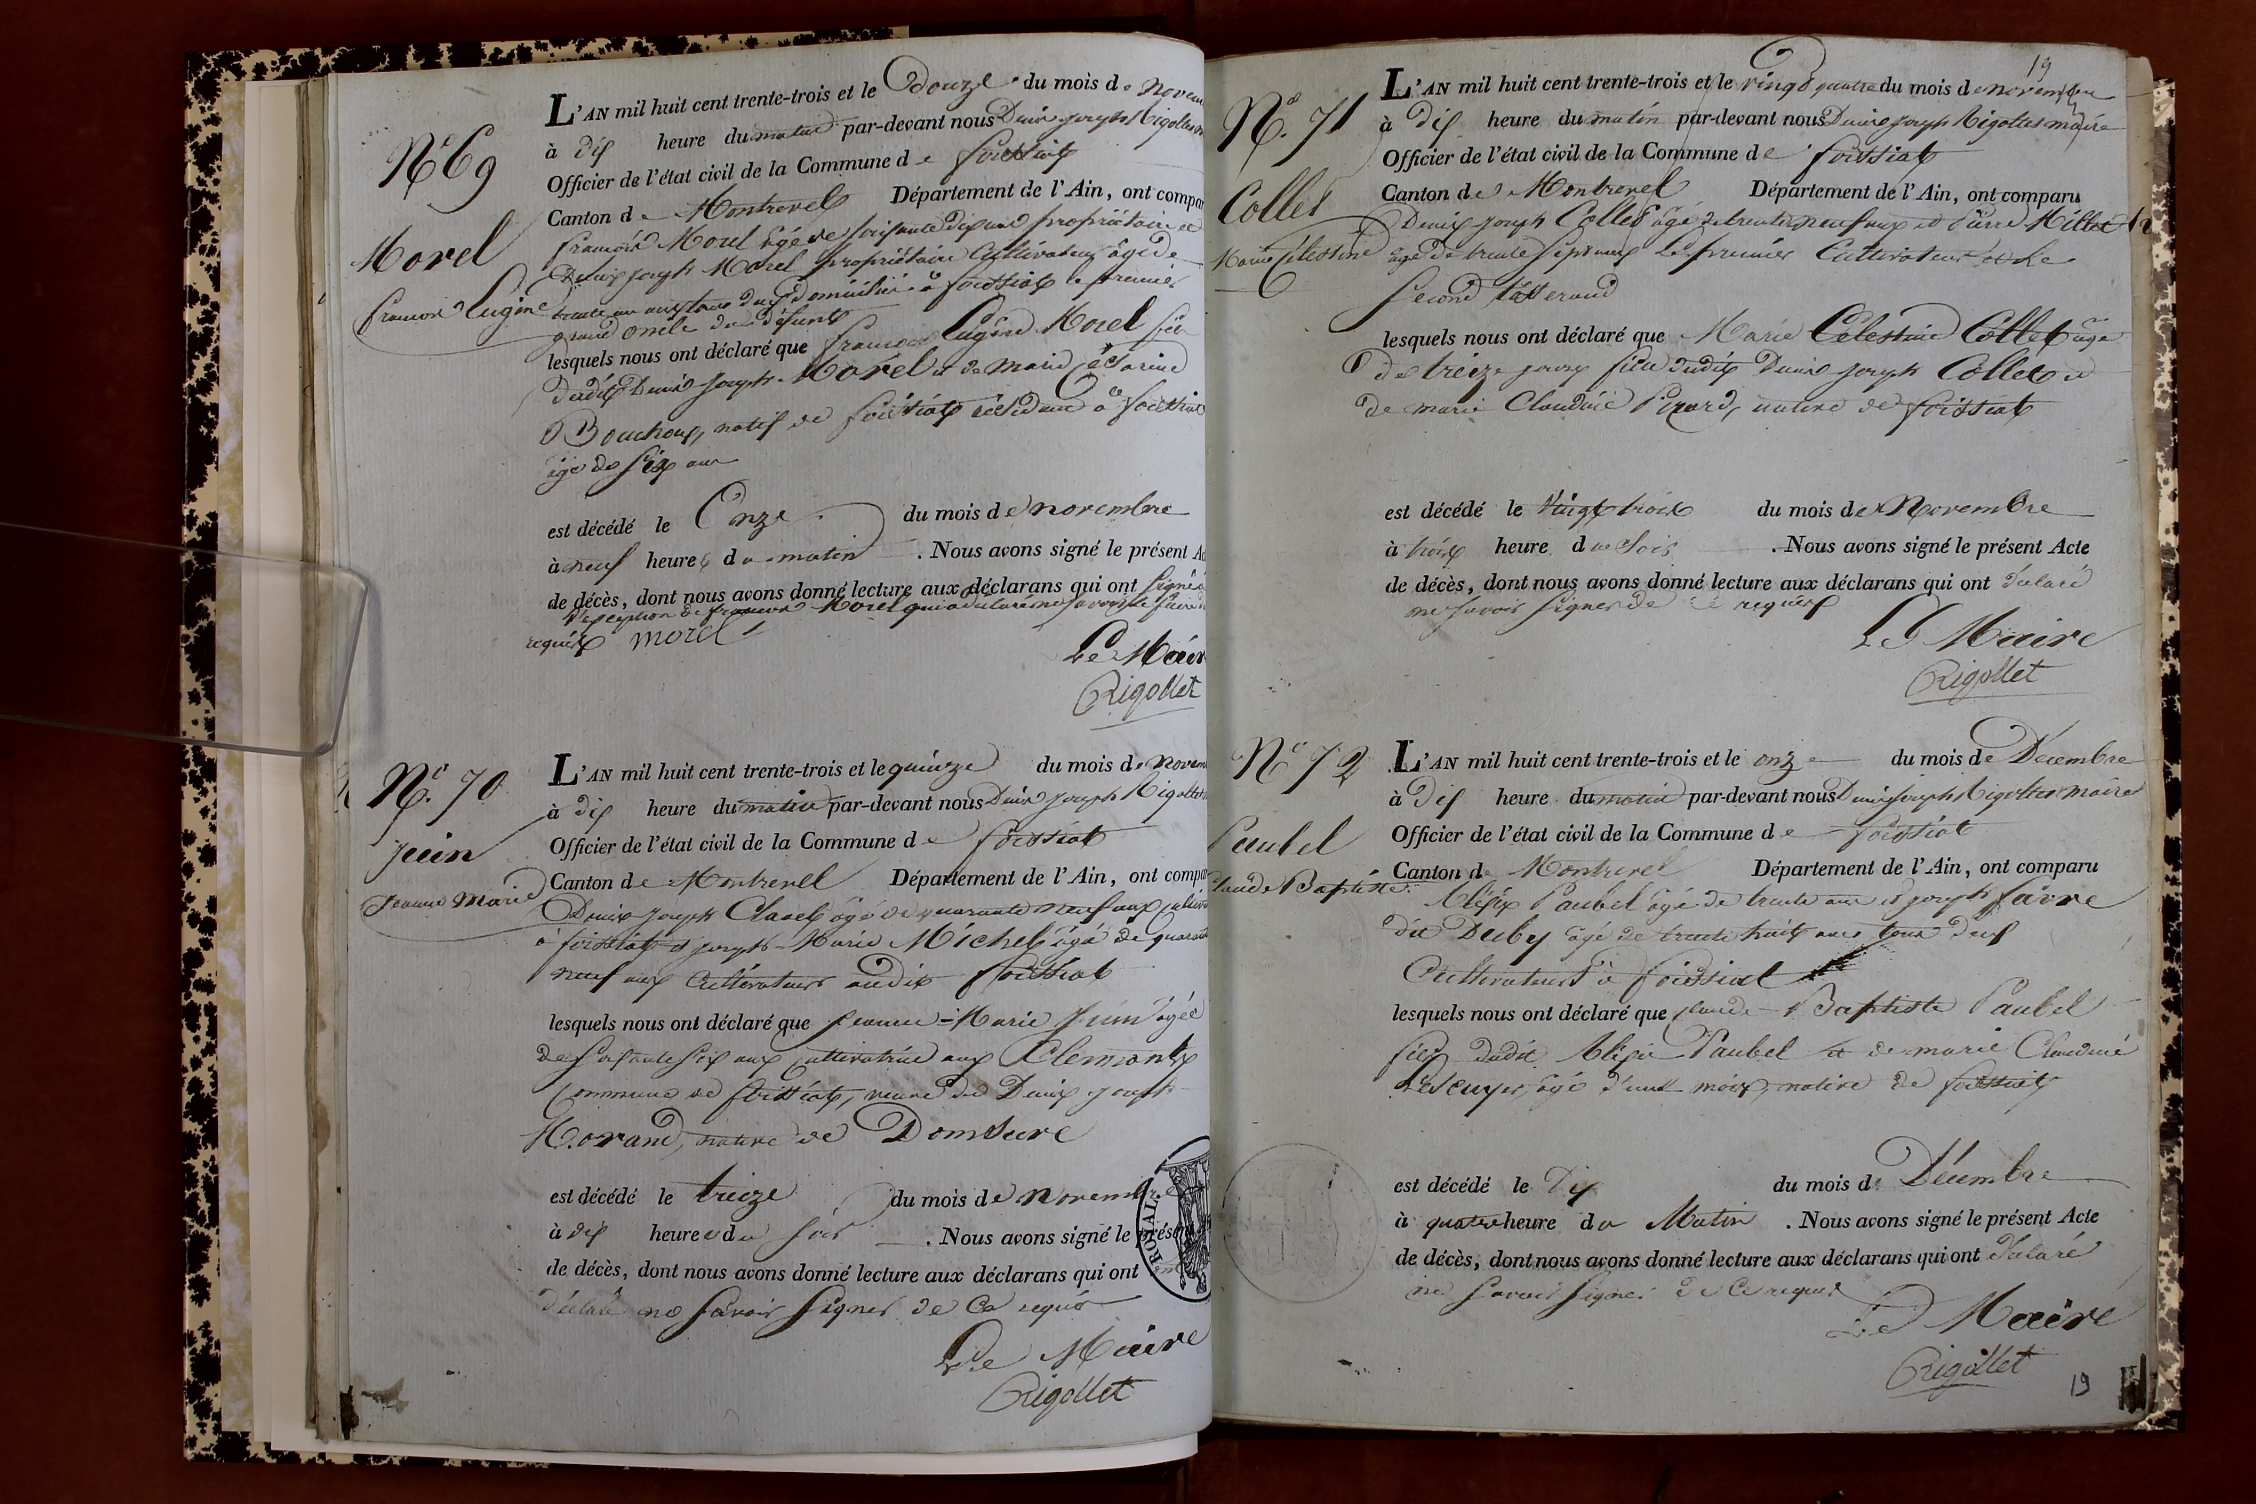 N° 69
Morel
françois Eugène
L'AN mil huit cent trente-trois et le Douze du mois de Novem
à dix heure du matin par-devant nous Denis joseph Rigollet
Officier de l'état civil de la Commune de foissiat
Canton de Montrevel Département de l'Ain, ont compar
françois Morel âgé de soixante dix ans propriétaire et
Denis joseph Morel propriétaire Cultivateur âgé de
trente un ans tous deux domiciliés à foissiat le premier
grand oncle du défunt
lesquels nous ont déclaré que françois Eugène Morel fils
dudit Denis joseph Morel et de Marie
Bouchoux, natif de foissiat résidant à foissiat
âgé de six ans
est décédé le Onze du mois de novembre
à neuf heures du matin. Nous avons signé le présent Ac
de décès, dont nous avons donné lecture aux déclarans qui ont signé
l'exception de françois Morel qui a déclaré ne savoir le faire de
requis morel
Le Mair
Rigollet
N° 70
juin
jeanne Marie
L'AN mil huit cent trente-trois et le quinze du mois de Novem
à dix heure du matin par-devant nous Denis joseph Rigollet
Officier de l'état civil de la Commune de foissiat
Canton de Montrevel Département de l'Ain, ont compar
Denis joseph Clavel âgé de quarante neuf ans
à foissiat et joseph Marie Michel âgé de quarante
neuf ans Cultivateurs audit foissiat
lesquels nous ont déclaré que jeanne-Marie juin âgée
de soixante six ans Cultivatrice aux Clemonts
Commune de foissiat, veuve de Denis joseph
Morand, native de Domsure
est décédé le treize du mois de novembre
à dix heures du soir. Nous avons signé le présent
ROYAL
de décès, dont nous avons donné lecture aux déclarans qui ont
déclaré ne savoir signer de ce requis
Le Maire
Rigollet
19
N° 71
Collet
Marie Célestine
L'AN mil huit cent trente-trois et le vingt quatre du mois de novembre
à dix heure du matin par-devant nous Denis joseph Rigollet maire
Officier de l'état civil de la Commune de foissiat
Canton de Montrevel Département de l'Ain, ont comparu
Denis joseph Collet âgé de trente neuf ans et Pierre Millet
âgé de trente sept ans le premier Cultivateur et le
second tisserand
lesquels nous ont déclaré que Marie Célestine Collet âgé
de treize jours fille dudit Denis joseph Collet et
de marie Claudine Pirard, native de foissiat
est décédé le Vingt trois du mois de Novembre
à trois heure du soir. Nous avons signé le présent Acte
de décès, dont nous avons donné lecture aux déclarans qui ont déclaré
ne savoir signer de ce requis
Le Maire
Rigollet
N° 72
Paubel
laude Baptiste
L'AN mil huit cent trente-trois et le onze du mois de Décembre
à Dix heure du matin par-devant nous Denis joseph Rigollet maire
Officier de l'état civil de la Commune de foissiat
Canton de Montrevel Département de l'Ain, ont comparu
Alexis Paubel âgé de trente ans et joseph favre
dit Duby âgé de trente huit ans tous deux
Cultivateurs à foissiat
lesquels nous ont déclaré que Claude Baptiste Paubel
fils dudit Alexis Paubel et de marie Claudine
Lescuyer, âgé d'un mois, native de foissiat
est décédé le Dix du mois de Décembre
à quatre heure du Matin. Nous avons signé le présent Acte
de décès, dont nous avons donné lecture aux déclarans qui ont déclaré
ne savoir signer de ce requis
Le Maire
Rigollet
19